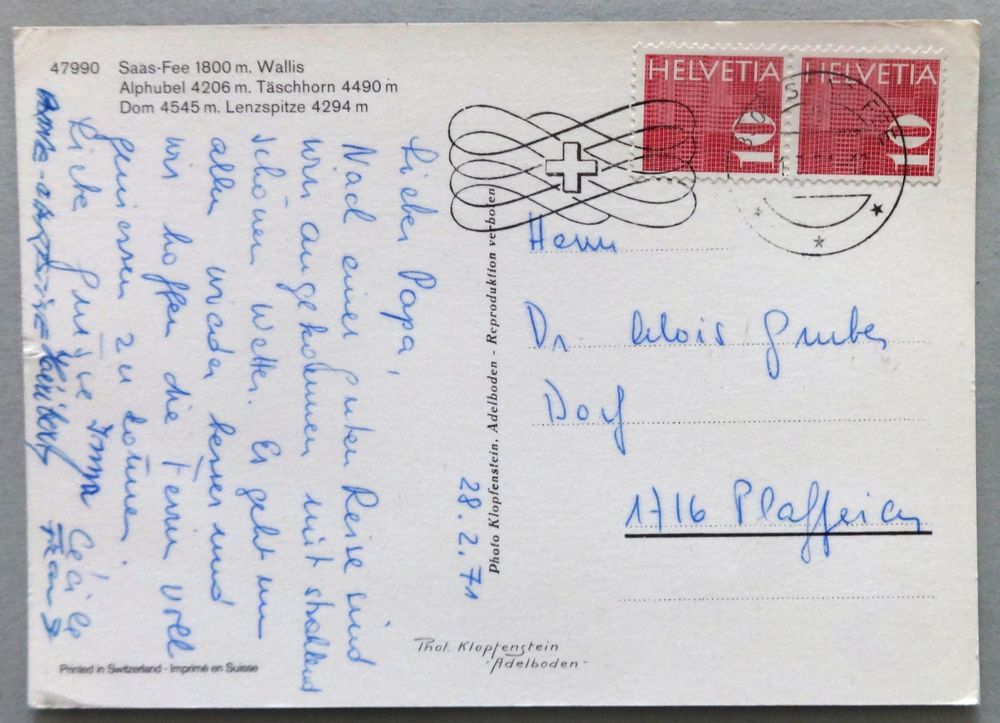 47990 Saas-Fee 1800 m. Wallis
Alphubel 4206 m. Täschhorn 4490 m
Dom 4545 m. Lenzspitze 4294 m
HELVETIA
10
HELVETIA
10
28.2.71
Lieber Papa,
Nach einer guten Reise sind
wir angekommen mit strahlend
schönem Wetter. Es geht uns
allen wieder besser und
wir hoffen die Ferien voll
geniessen zu können.
Liebe Grüsse Cécile
Franz
Photo Klopfenstein, Adelboden - Reproduktion verboten
Herrn
Dr Alois Gruber
Dorf
1716 Plaffeien
Phot. Klopfenstein
-Adelboden-
Printed in Switzerland - Imprimé en Suisse